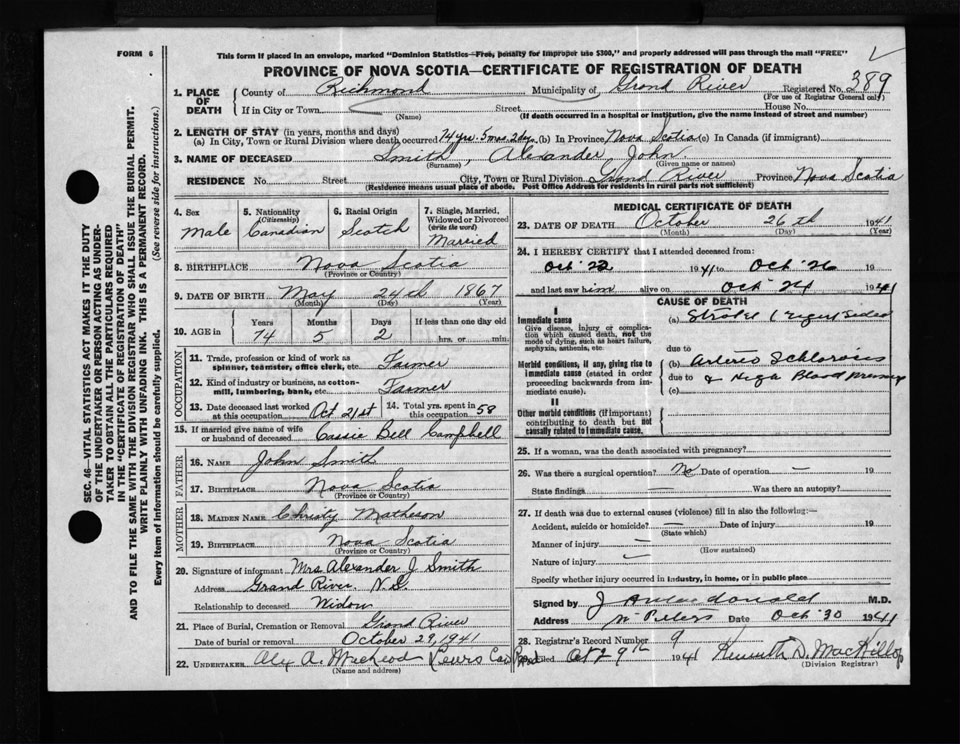 FORM 6
This form if placed in an envelope, marked "Dominion Statistics—Free, penalty for improper use $300," and properly addressed will pass through the mail "FREE"
PROVINCE OF NOVA SCOTIA—CERTIFICATE OF REGISTRATION OF DEATH
1. PLACE OF DEATH County of Richmond Municipality of Grand River Registered No. 389
(For use of Registrar General only)
If in City or Town Street House No.
(Name) (If death occurred in a hospital or institution, give the name instead of street and number)
2. LENGTH OF STAY (in years, months and days)
(a) In City, Town or Rural Division where death occurred 74 yrs. 5 mos. 2 dys. (b) In Province Nova Scotia (c) In Canada (if immigrant)
3. NAME OF DECEASED Smith, Alexander John
(Surname) (Given name or names)
RESIDENCE No. Street City, Town or Rural Division Grand River Province Nova Scotia
(Residence means usual place of abode. Post Office Address for residents in rural parts not sufficient)
4. Sex Male
5. Nationality (Citizenship) Canadian
6. Racial Origin Scotch
7. Single, Married, Widowed or Divorced (write the word) Married
8. BIRTHPLACE Nova Scotia
(Province or Country)
9. DATE OF BIRTH May 24th 1867
(Month) (Day) (Year)
10. AGE in Years Months Days If less than one day old
74 5 2 hrs. or min.
OCCUPATION
11. Trade, profession or kind of work as spinner, teamster, office clerk, etc. Farmer
12. Kind of industry or business, as cotton-mill, lumbering, bank, etc. Farmer
13. Date deceased last worked at this occupation Oct 21st
14. Total yrs. spent in this occupation 58
15. If married give name of wife or husband of deceased Cassie Bell Campbell
FATHER
16. NAME John Smith
17. BIRTHPLACE Nova Scotia
(Province or Country)
MOTHER
18. MAIDEN NAME Christy Matheson
19. BIRTHPLACE Nova Scotia
(Province or Country)
20. Signature of informant Mrs Alexander J. Smith
Address Grand River, N.S.
Relationship to deceased Widow
21. Place of Burial, Cremation or Removal Grand River
Date of burial or removal October 29, 1941
22. UNDERTAKER Alex A. MacLeod
(Name and address)
MEDICAL CERTIFICATE OF DEATH
23. DATE OF DEATH October 26th 1941
(Month) (Day) (Year)
24. I HEREBY CERTIFY that I attended deceased from:
Oct 22 1941 to Oct 26 19
and last saw him alive on Oct 24 1941
CAUSE OF DEATH
I
Immediate cause
Give disease, injury or complication which caused death, not the mode of dying, such as heart failure, asphyxia, asthenia, etc.
(a) Stroke
due to
Morbid conditions, if any, giving rise to immediate cause (stated in order proceeding backwards from immediate cause).
(b) Arterio Schlorosies
due to & High Blood pressure
(c)
II
Other morbid conditions (if important) contributing to death but not causally related to immediate cause.
25. If a woman, was the death associated with pregnancy?
26. Was there a surgical operation? No Date of operation — 19
State findings Was there an autopsy?
27. If death was due to external causes (violence) fill in also the following:—
Accident, suicide or homicide? — Date of injury 19
(State which)
Manner of injury —
(How sustained)
Nature of injury —
Specify whether injury occurred in industry, in home, or in public place
Signed by J A Macdonald M.D.
Address St Peters Date Oct 30 1941
28. Registrar's Record Number 9
Filed Oct 29th 1941 Kenneth D. MacKillop
(Division Registrar)
SEC. 46—VITAL STATISTICS ACT MAKES IT THE DUTY
OF THE UNDERTAKER OR PERSON ACTING AS UNDER-
TAKER TO OBTAIN ALL THE PARTICULARS REQUIRED
IN THE "CERTIFICATE OF REGISTRATION OF DEATH"
AND TO FILE THE SAME WITH THE DIVISION REGISTRAR WHO SHALL ISSUE THE BURIAL PERMIT.
WRITE PLAINLY WITH UNFADING INK. THIS IS A PERMANENT RECORD.
Every item of information should be carefully supplied. (See reverse side for instructions.)